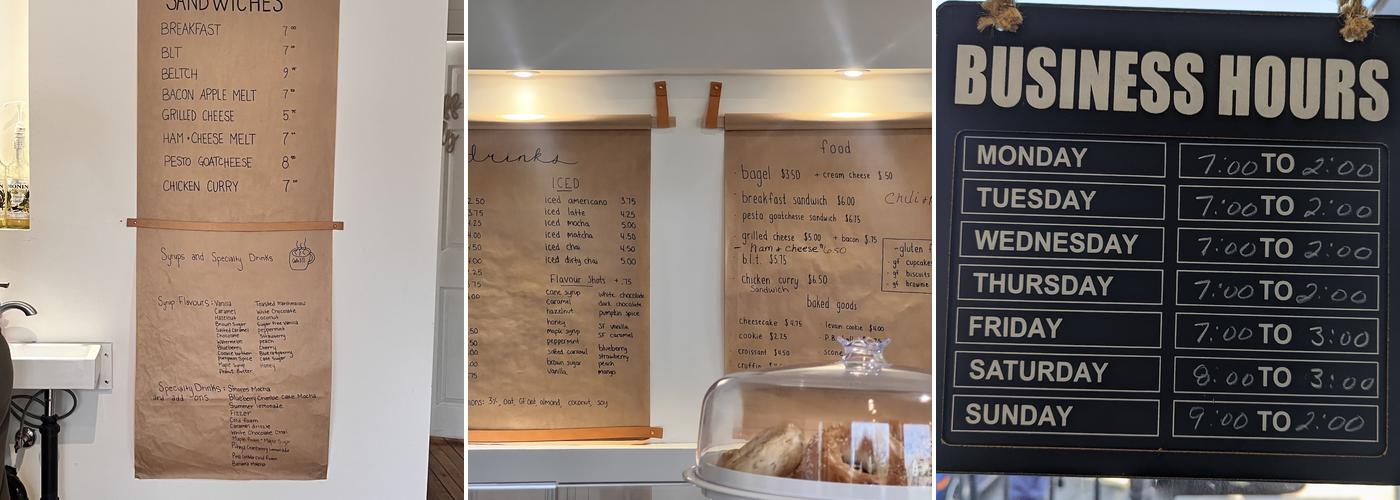 SANDWICHES
BREAKFAST 7.⁰⁰
BLT 7.⁰⁰
BELTCH 9.⁰⁰
BACON APPLE MELT 7.⁰⁰
GRILLED CHEESE 5.
HAM + CHEESE MELT 7.⁰⁰
PESTO GOATCHEESE 8.⁰⁰
CHICKEN CURRY 7.⁰⁰
Syrups and Specialty Drinks
Syrup Flavours: Vanilla Toasted Marshmallow
Caramel White Chocolate
Hazelnut Coconut
Brown Sugar Sugar Free Vanilla
Salted Caramel peppermint
Chocolate Strawberry
Watermelon peach
Blueberry Cherry
Cookie Butter
Pumpkin Spice Cane Sugar
Maple Syrup Honey
Peanut Butter
Specialty Drinks: S'mores Mocha
and add-ons Blueberry Cheesecake Mocha
Summer Lemonade
Fizzer
Cold foam
Caramel drizzle
White Chocolate Chai
Maple Foam + Maple Sugar
Cranberry Lemonade
Pink Cold Foam
Banana Mocha
MONIN
drinks
ICED
2.50 iced americano 3.75
3.75 iced latte 4.25
iced mocha 5.00
iced matcha 4.50
.50 iced chai 4.50
.00 iced dirty chai 5.00
.25 Flavour Shots + .75
.00 cane syrup white chocolate
caramel dark chocolate
hazelnut pumpkin spice
honey SF vanilla
.50 maple syrup SF caramel
peppermint
.00 salted caramel blueberry
strawberry
.00 brown sugar peach
.75 vanilla mango
ions: 3%, oat, GF oat, almond, coconut, soy
food
· bagel $3.50 + cream cheese $.50
· breakfast sandwich $6.00
· pesto goatcheese sandwich $6.75
· grilled cheese $5.00 + bacon $.75
- Ham + cheese $6.50
· b.l.t. $5.75
· chicken curry $6.50
Sandwich
-gluten f
· gf cupcake
· gf biscuits
· gf brownie
baked goods
cheesecake $4.75 levain cookie $4.00
cookie $2.75 P.B.
croissant $4.50 scone
cruffin
BUSINESS HOURS
MONDAY 7:00 TO 2:00
TUESDAY 7:00 TO 2:00
WEDNESDAY 7:00 TO 2:00
THURSDAY 7:00 TO 2:00
FRIDAY 7:00 TO 3:00
SATURDAY 8:00 TO 3:00
SUNDAY 9:00 TO 2:00